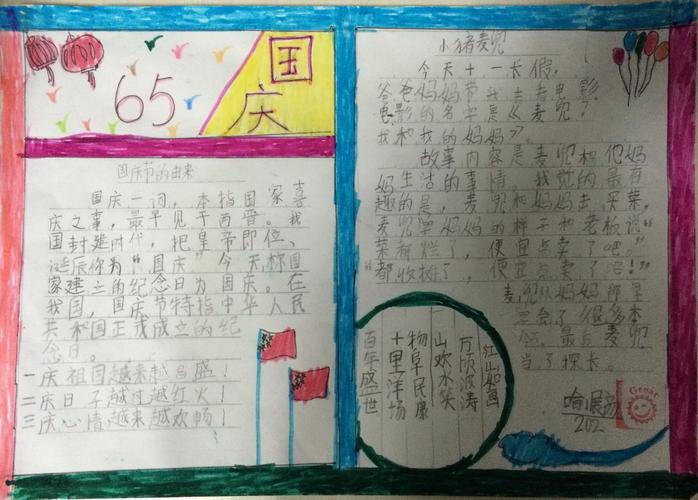 65
国庆
国庆节的由来
国庆一词，本指国家喜
庆之事，最早见于西晋。我
国封建时代，把皇帝即位、
诞辰你为“国庆”今天称国
家建立的纪念日为国庆。在
我国，国庆节特指中华人民
共和国正式成立的纪
念日。
一庆祖国越来越昌盛！
二庆日子越过越红火！
三庆心情越来越欢畅！
小猪麦兜
今天十一长假，
爸爸妈妈带我去看电影
电影的名字是《麦兜？
我和我的妈妈》。
故事内容是麦兜和他妈
妈生活的事情。我觉的最有
趣的是，麦兜和妈妈去买菜，
麦兜学妈妈的样子和老板说“
菜都烂了，便宜点卖了吧。”
“都收摊了，便宜点卖了吧！”
麦兜从妈妈那里
学会了很多本
领，最后麦兜
当了探长。
江山如画
万顷波涛
山欢水笑
物阜民康
十里洋场
百年盛世
Great
202